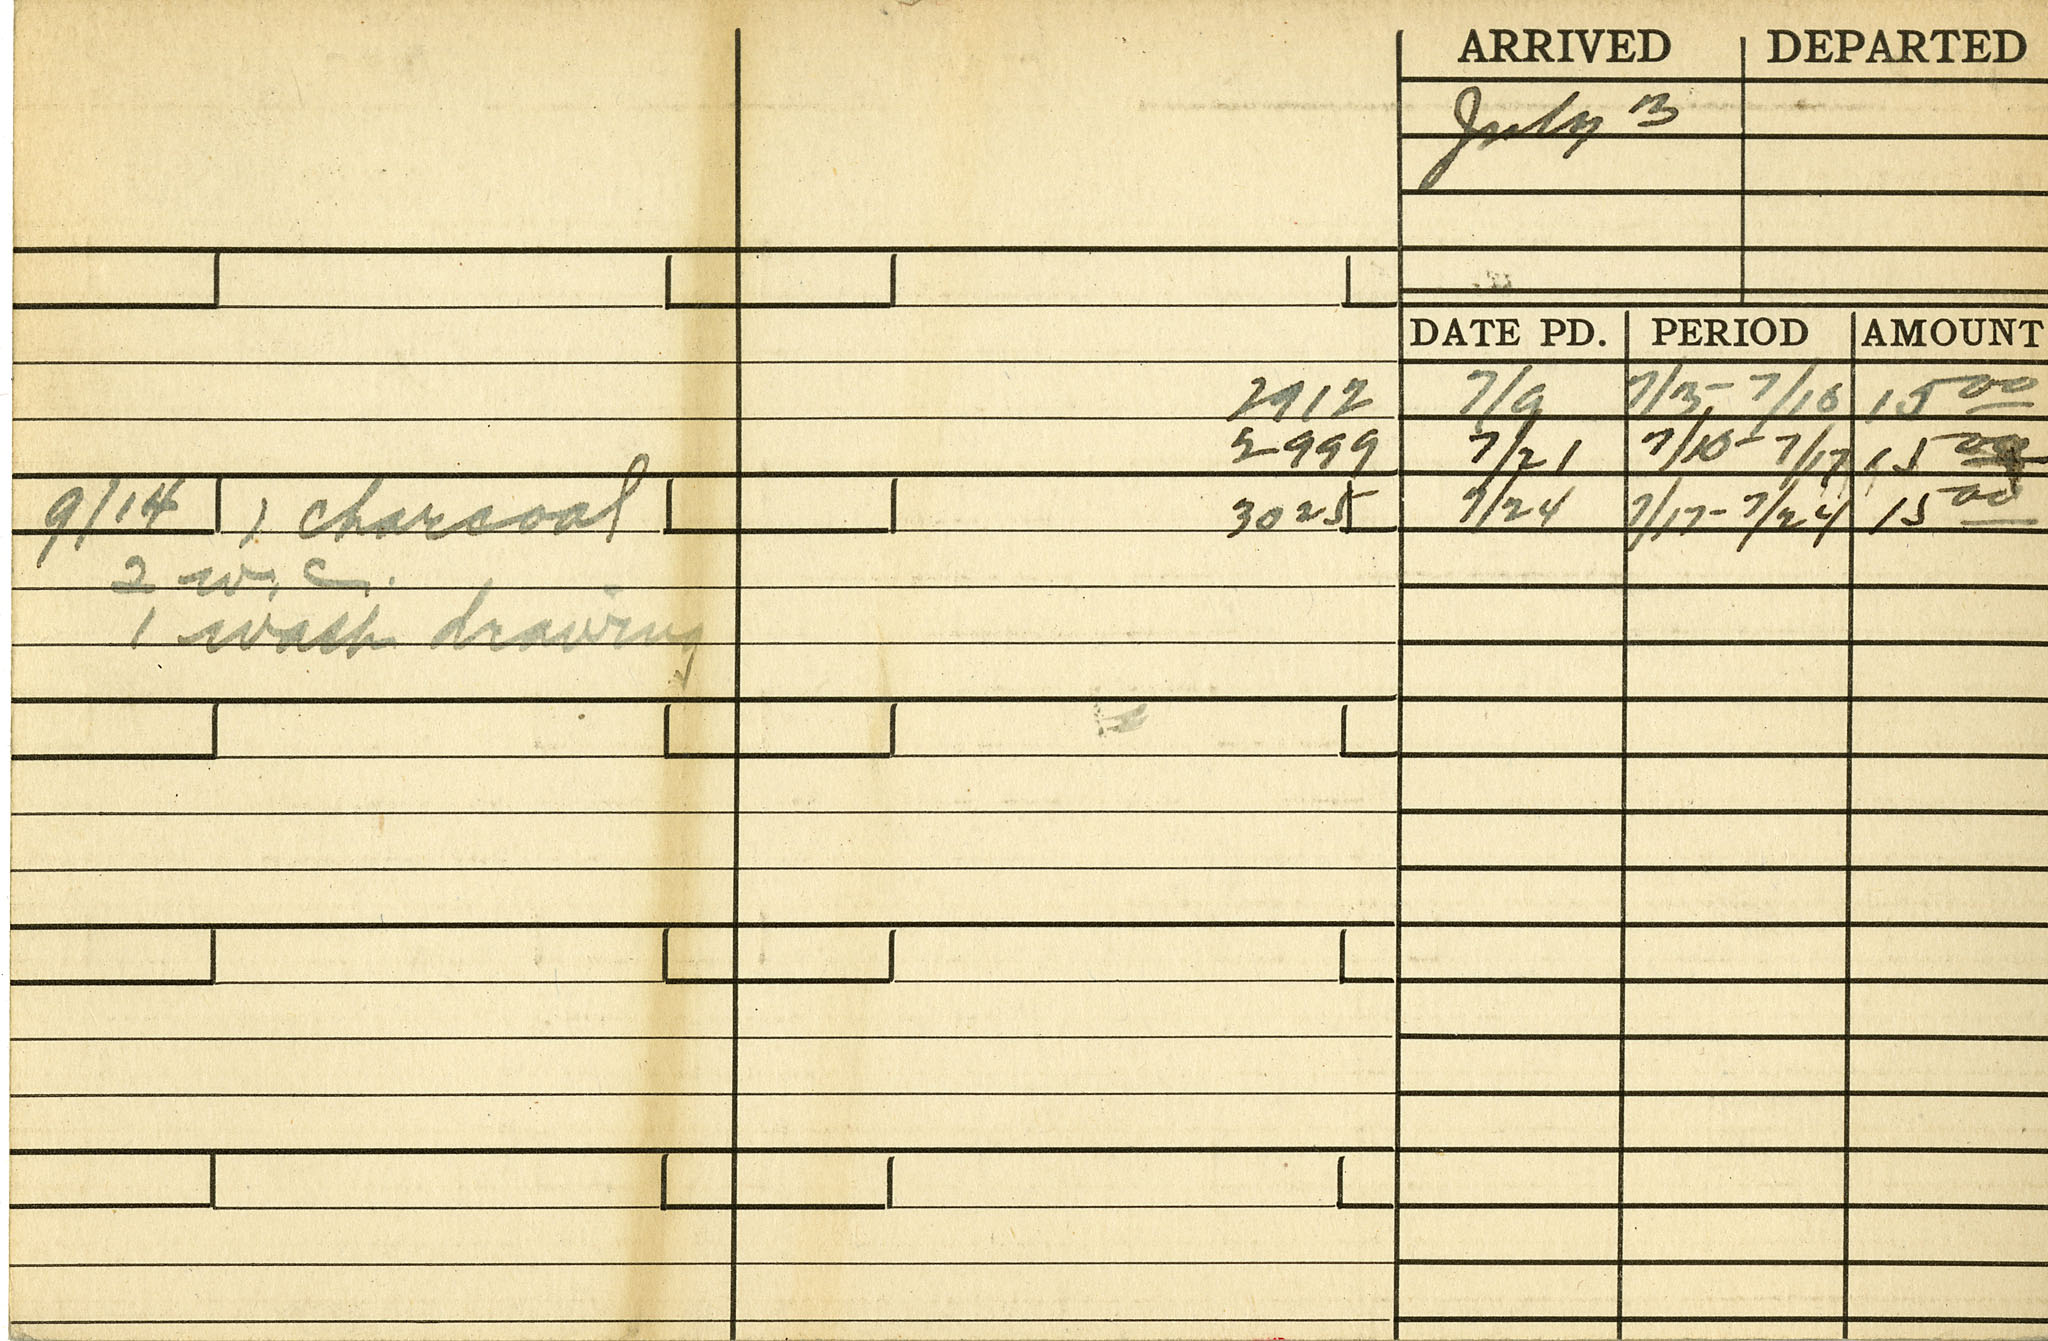 ARRIVED DEPARTED
July 3
DATE PD. PERIOD AMOUNT
2912 7/9 7/3-7/10 15 00
2999 7/21 7/10-7/17 15 00
9/14 1 charcoal 3025 7/24 7/17-7/24 15 00
2 w.c.
1 wash drawing